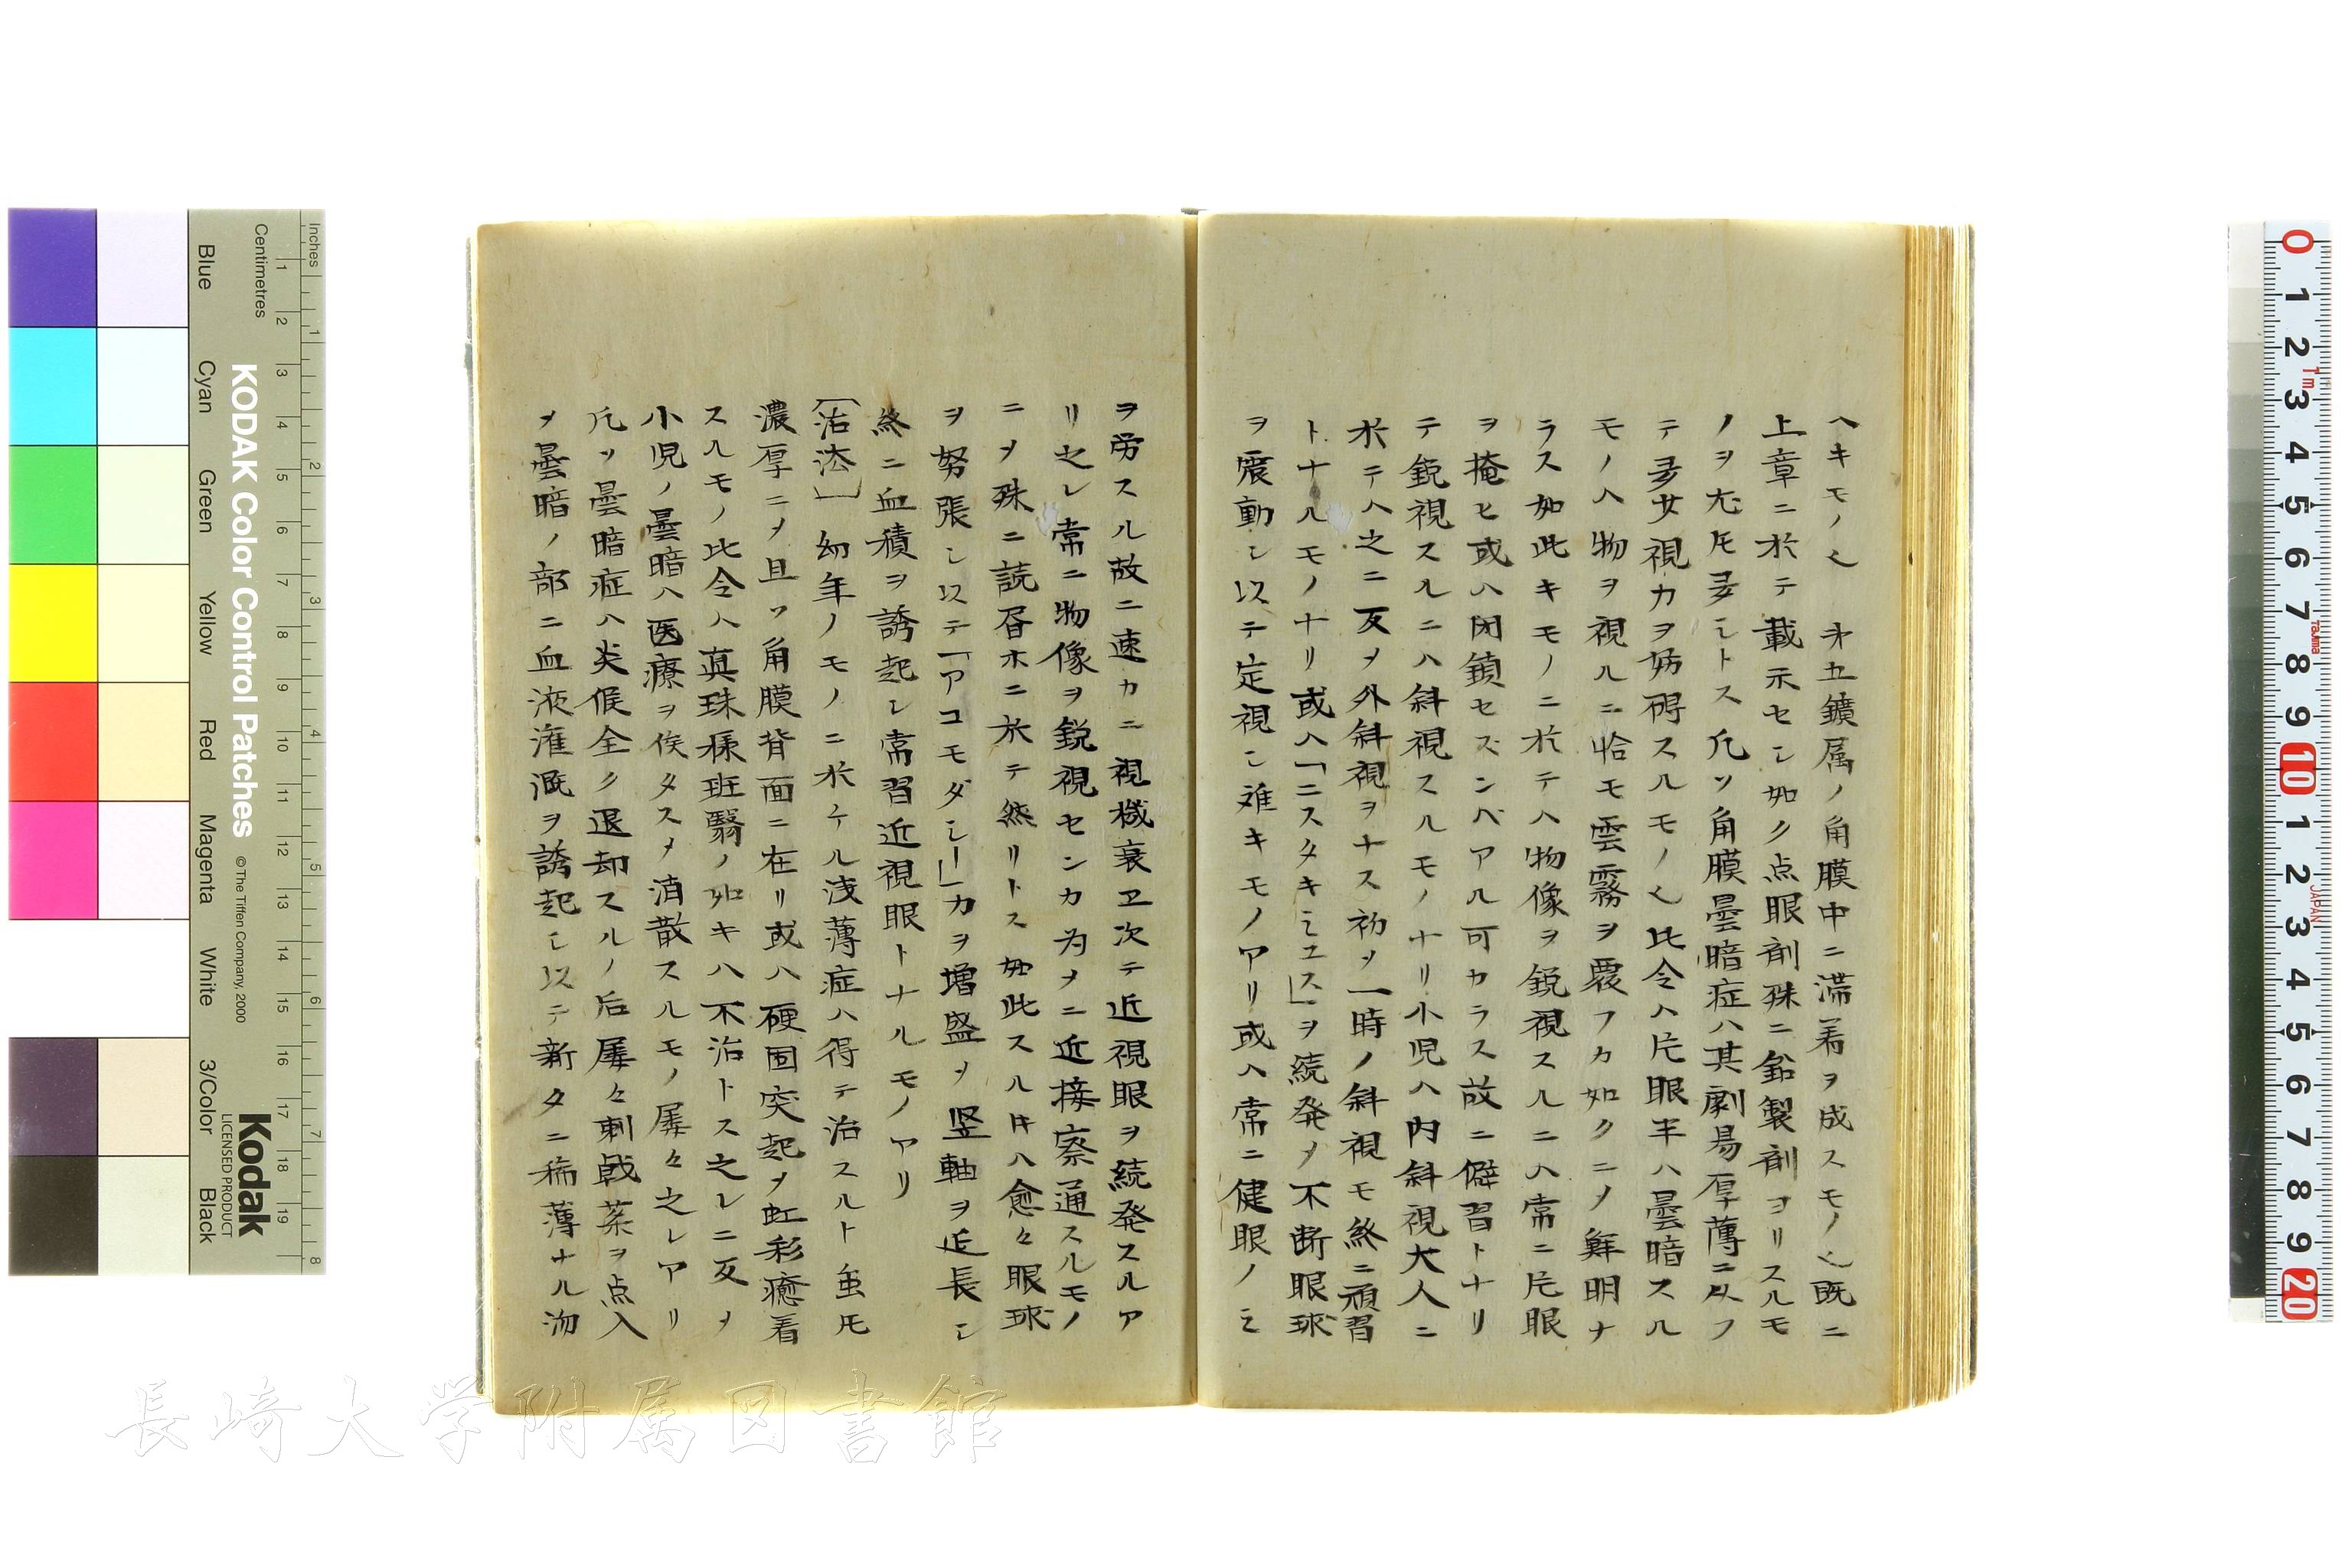 ヘキモノ也　第五鑛属ノ角膜中ニ滞着ヲ成スモノ也既ニ
上章ニ於テ載示セシ如ク点眼剤殊ニ鉛製剤ヨリスルモ
ノヲ尤モ多シトス凡ソ角膜曇暗症ハ其劇易厚薄ニ从フ
テ多少視力ヲ妨碍スルモノ也比令ハ片眼半ハ曇暗スル
モノハ物ヲ視ルニ恰モ雲霧ヲ覆フカ如クニメ鮮明ナ
ラス如此キモノニ於テハ物像ヲ鋭視スルニハ常ニ片眼
ヲ掩ヒ或ハ閉鎖セズンベアル可カラス故ニ僻習トナリ
テ鋭視スルニハ斜視スルモノナリ小児ハ内斜視大人ニ
於テハ之ニ反メ外斜視ヲナス初メ一時ノ斜視モ終ニ頑習
トナルモノナリ或ハ「ニスタキミユス」ヲ続発メ不断眼球
ヲ震動シ以テ定視シ難キモノアリ或ハ常ニ健眼ノミ
ヲ労スル故ニ速カニ視機衰ヱ次テ近視眼ヲ続発スルア
リ之レ常ニ物像ヲ鋭視センカ為メニ近接察通スルモノ
ニメ殊ニ読書ホニ於テ然リトス如此スルキハ愈々眼球
ヲ努張シ以テ「アコモダシー」力ヲ増盛メ竪軸ヲ延長シ
終ニ血積ヲ誘起シ常習近視眼トナルモノアリ
〔治法〕　幼年ノモノニ於ケル浅薄症ハ得テ治スルト虽モ
濃厚ニメ且ツ角膜背面ニ在リ或ハ硬固突起メ虹彩癒着
スルモノ比令ハ真珠様斑翳ノ如キハ不治トス之レニ反メ
小児ノ曇暗ハ医療ヲ俟タスメ消散スルモノ屡々之レアリ
凡ソ曇暗症ハ炎候全ク退却スルノ后屡々刺戟薬ヲ点入
メ曇暗ノ部ニ血液潅漑ヲ誘起シ以テ新タニ稀薄ナル沕
Inches
Centimetres
KODAK Color Control Patches
©The Tiffen Company, 2000
Kodak
LICENSED PRODUCT
Blue
Cyan
Green
Yellow
Red
Magenta
White
3/Color
Black
1 2 3 4 5 6 7 8 9 10 11 12 13 14 15 16 17 18 19
1 2 3 4 5 6 7 8
0 1 2 3 4 5 6 7 8 9 10 1 2 3 4 5 6 7 8 9 20
1m
Tajima
JAPAN
長崎大学附属図書館